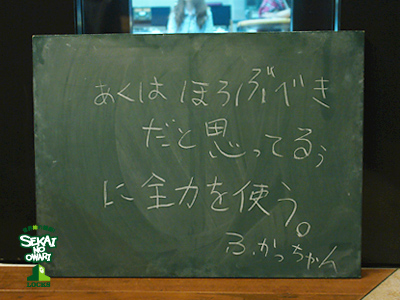 あくは ほろぶべき
だと思ってるぅ
に全力を使う。
ふかっちゃん
SEKAI
NO
OWARI
LOCKS!